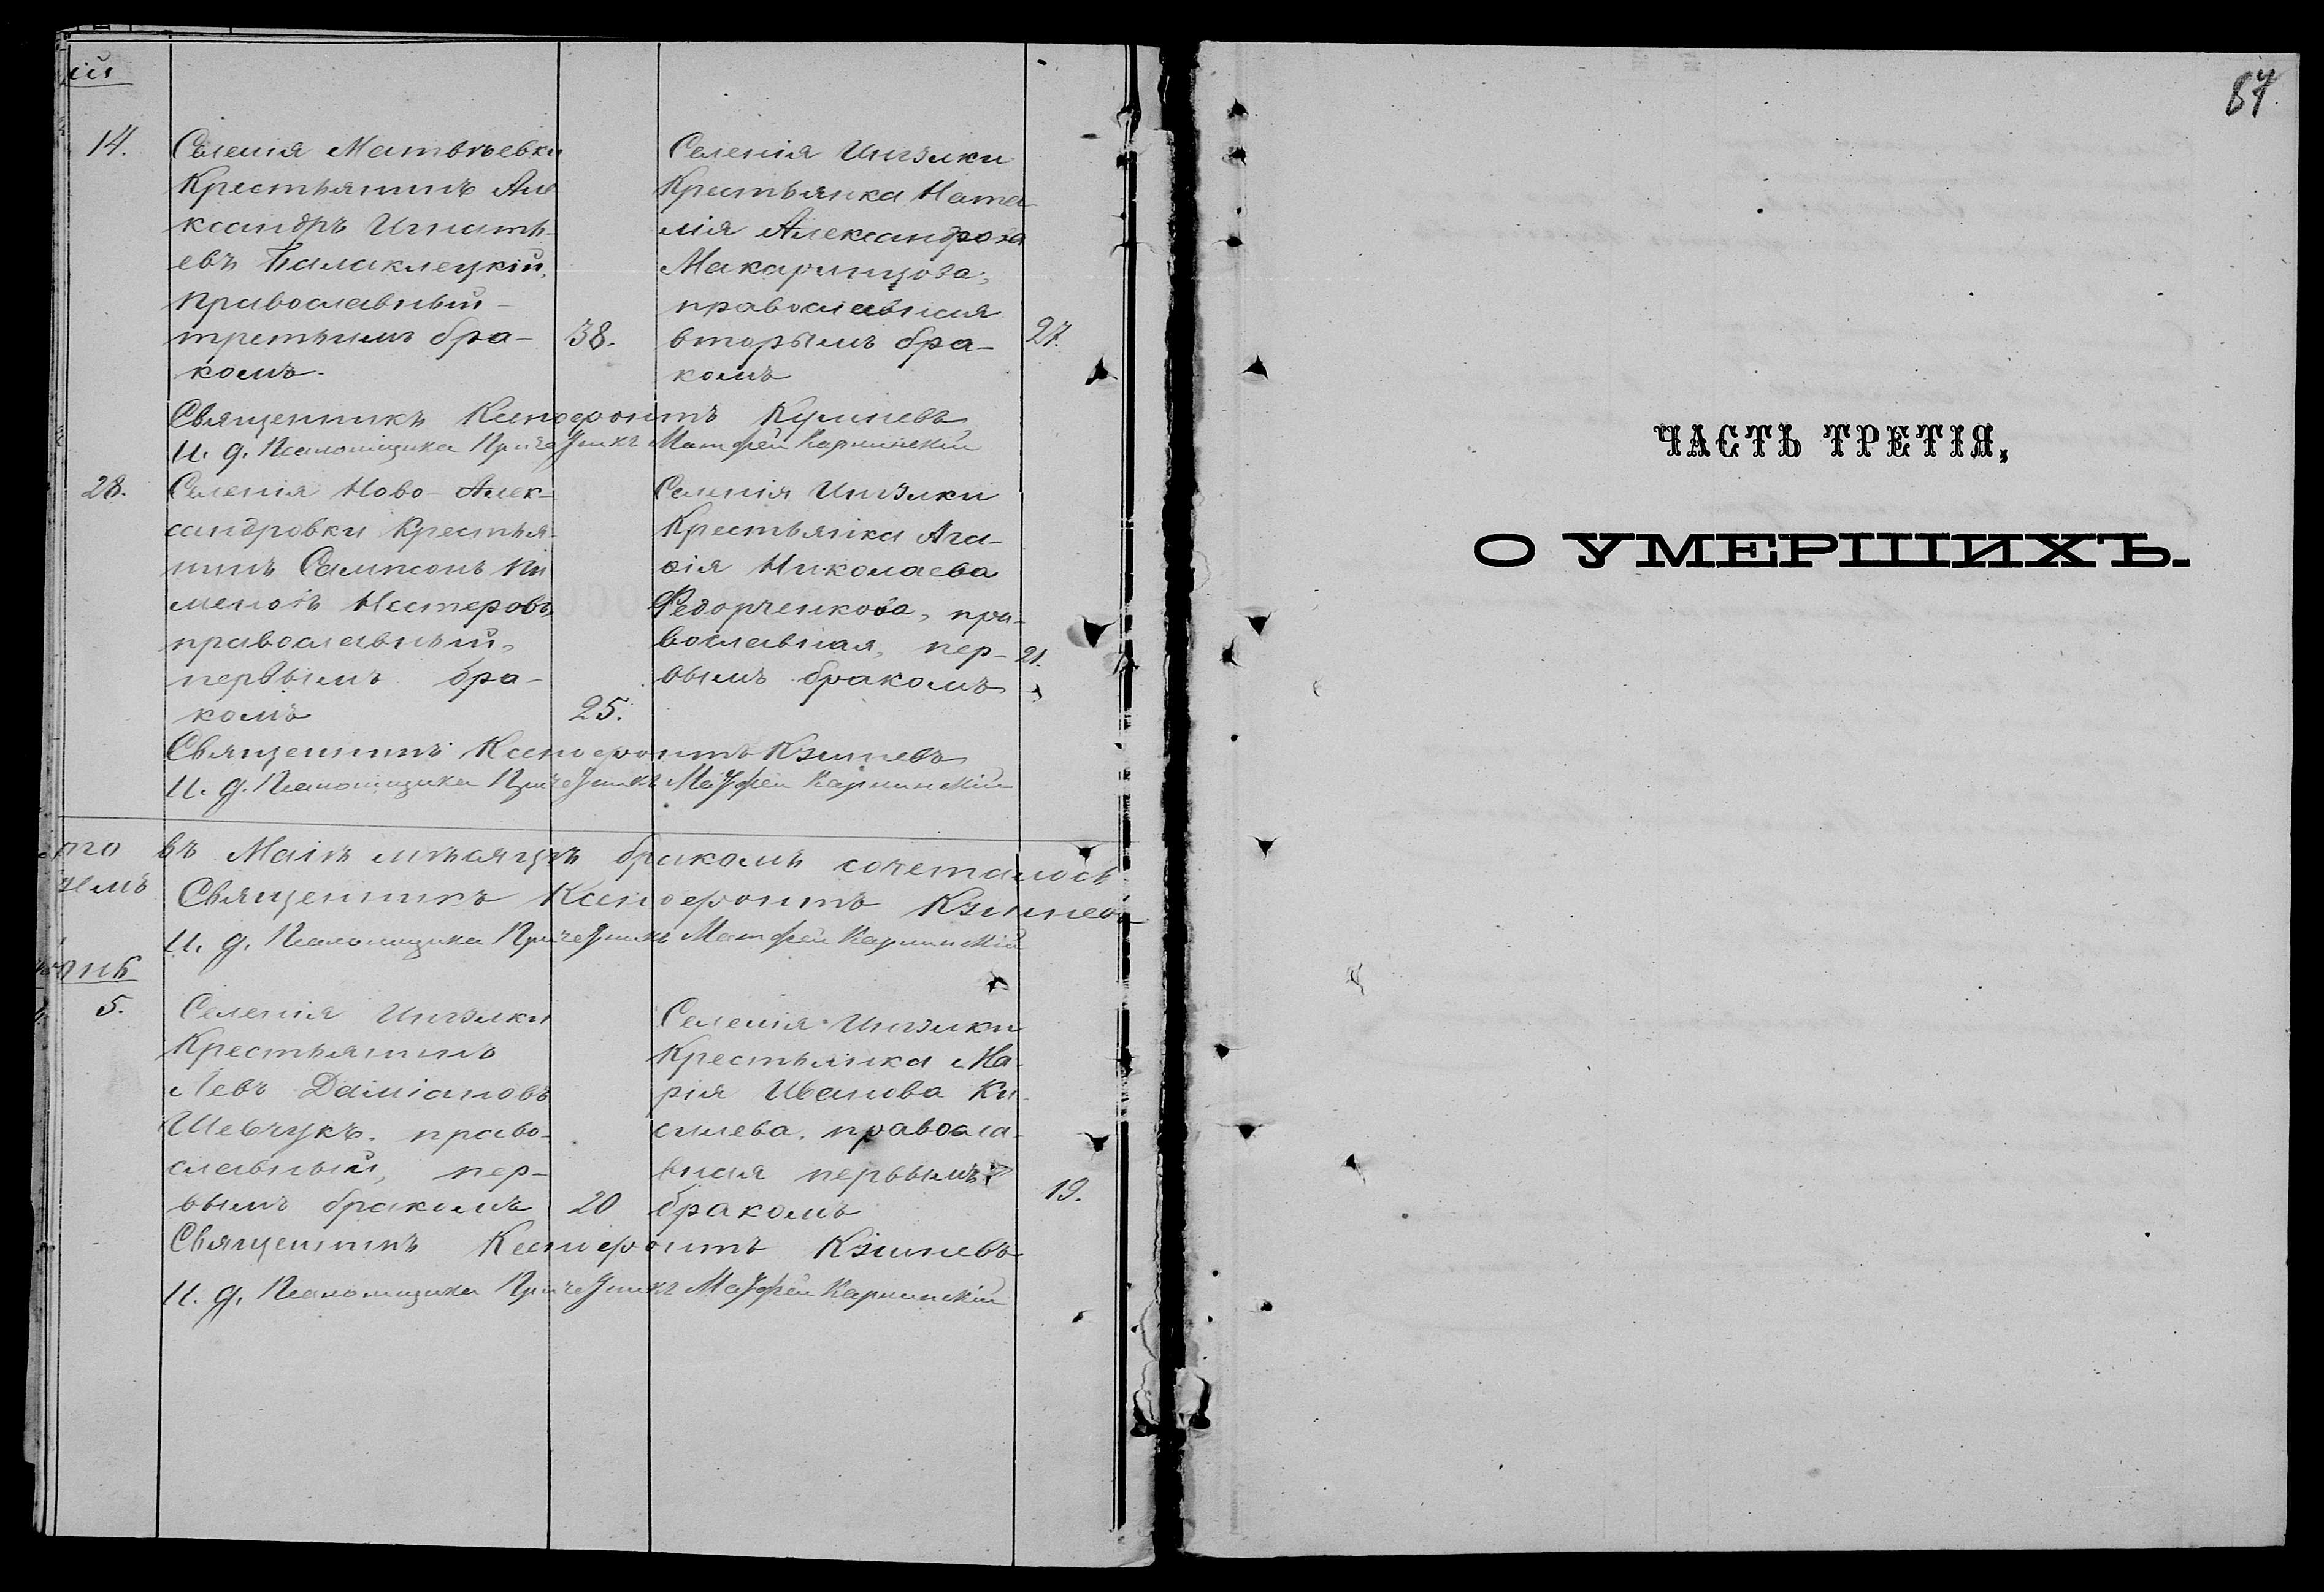 ій
14.
Селенія Матвѣевки
Крестьянинъ Але
ксандръ Игнатъ-
евъ Балаклецкій,
Православный-
третьимъ бра-
комъ.
38.
Селенія Ингулки
Крестьянка Ната-
лія Александрова
Макаринцова,
православная
вторымъ бра-
комъ
27.
Священникъ Ксенофонтъ
И. д. Псаломщика Причетникъ Матфей
28.
Селенія Ново-Алек-
сандровки Крестья-
нинъ Сампсонъ Пи
меновъ Нестеровъ
православный,
первымъ бра-
комъ
25.
Селенія Ингулки
Крестьянка Ага-
ѳія Николаева
Федорченкова, пра-
вославная, пер-
вымъ бракомъ
21.
Священникъ Ксенофонтъ
И. д. Псаломщика Причетникъ Матфей
въ Маіѣ мѣсяцѣ бракомъ сочеталось
Священникъ Ксенофонтъ
И. д. Псаломщика Причетникъ Матфей
5.
Селенія Ингулки
Крестьянинъ
Левъ Даміановъ
Шевчукъ. право-
славный, пер-
вымъ бракомъ
20
Селенія Ингулки
Крестьянка Ма-
рія Иванова Ки-
силева, правосла-
вная первымъ
бракомъ
19.
Священникъ Ксенофонтъ
И. д. Псаломщика Причетникъ Матфей
87
ЧАСТЬ ТРЕТІЯ,
О УМЕРШИХЪ.